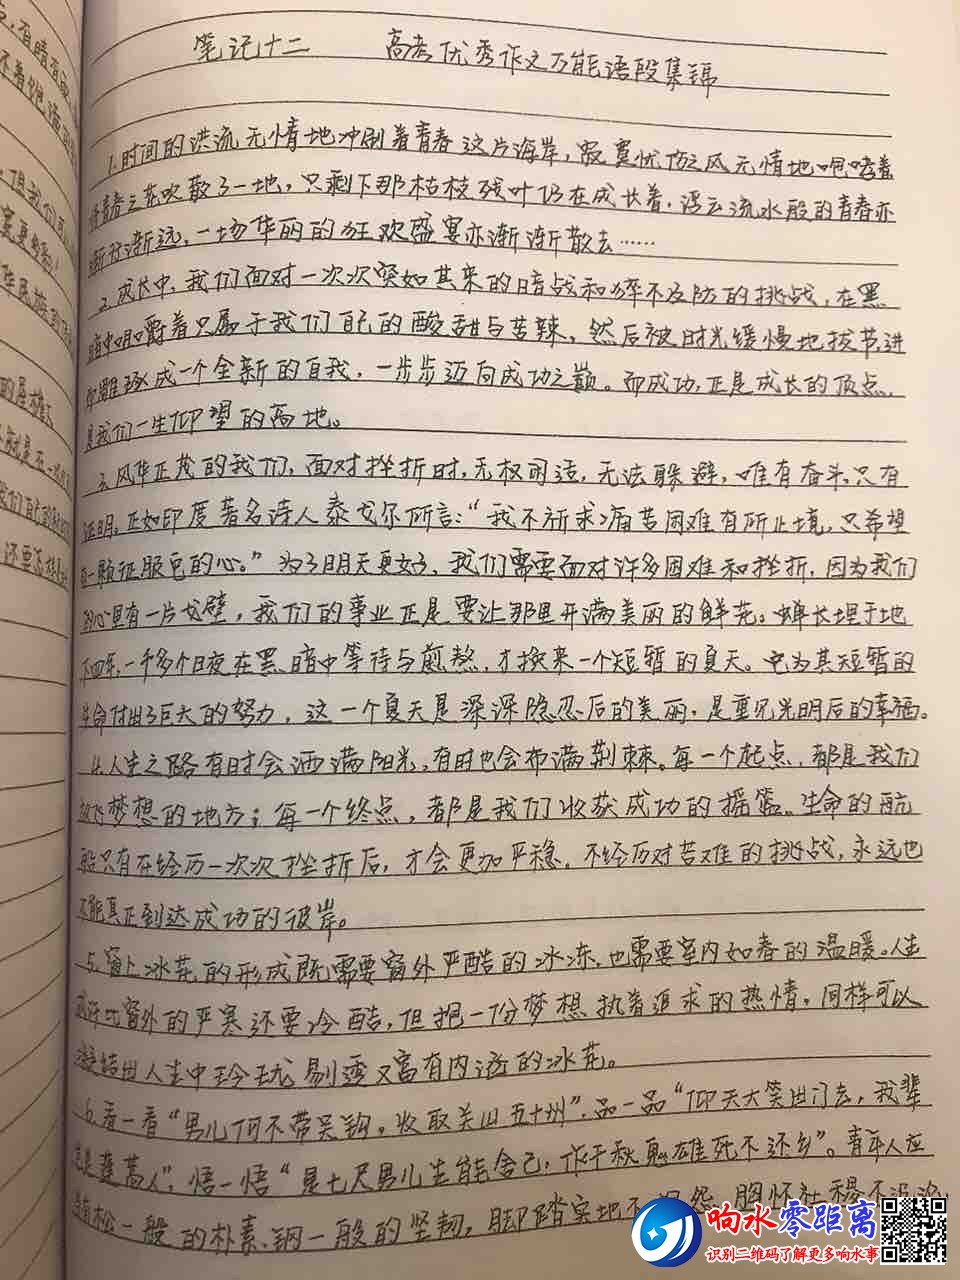 笔记十二 高考优秀作文万能语段集锦
1.时间的洪流无情地冲刷着青春这片海岸，寂寞忧伤之风无情地咆哮着
将青春之花吹散了一地，只剩下那枯枝残叶仍在成长着，浮云流水般的青春亦
渐行渐远，一场华丽的狂欢盛宴亦渐渐散去……
2.成长中，我们面对一次次突如其来的暗战和猝不及防的挑战，在黑
暗中咀嚼着只属于我们自己的酸甜与苦辣，然后被时光缓慢地拔节进
即雕琢成一个全新的自我，一步步迈向成功之巅。而成功，正是成长的顶点，
是我们一生仰望的高地。
3.风华正茂的我们，面对挫折时，无权闭适，无法躲避，唯有奋斗，只有
证明。正如印度著名诗人泰戈尔所言：“我不祈求痛苦困难有所止境，只希望
有一颗征服它的心。”为了明天更好，我们需要面对许多困难和挫折，因为我们
的心里有一片戈壁，我们的事业正是要让那里开满美丽的鲜花。蝉长埋于地
下四年，一千多个日夜在黑暗中等待与煎熬，才换来一个短暂的夏天。它为其短暂的
生命付出了巨大的努力，这一个夏天是深深隐忍后的美丽，是重见光明后的幸福。
4.人生之路有时会洒满阳光，有时也会布满荆棘。每一个起点，都是我们
放飞梦想的地方；每一个终点，都是我们收获成功的摇篮。生命的航
船只有在经历一次次挫折后，才会更加平稳，不经历对苦难的挑战，永远也
不能真正到达成功的彼岸。
5.窗上冰花的形成既需要窗外严酷的冰冻，也需要室内如春的温暖。人生
或许比窗外的严寒还要冷酷，但抱一份梦想执着追求的热情，同样可以
凝结出人生中玲珑剔透又富有内涵的冰花。
6.看一看“男儿何不带吴钩，收取关山五十州”，品一品“仰天大笑出门去，我辈
岂是蓬蒿人”，悟一悟“是七尺男儿生能舍己，作千秋鬼雄死不还乡”。青年人应
当有松一般的朴素、钢一般的坚韧，脚踏实地不
怨，胸怀社稷不
响水零距离
识别二维码了解更多响水事